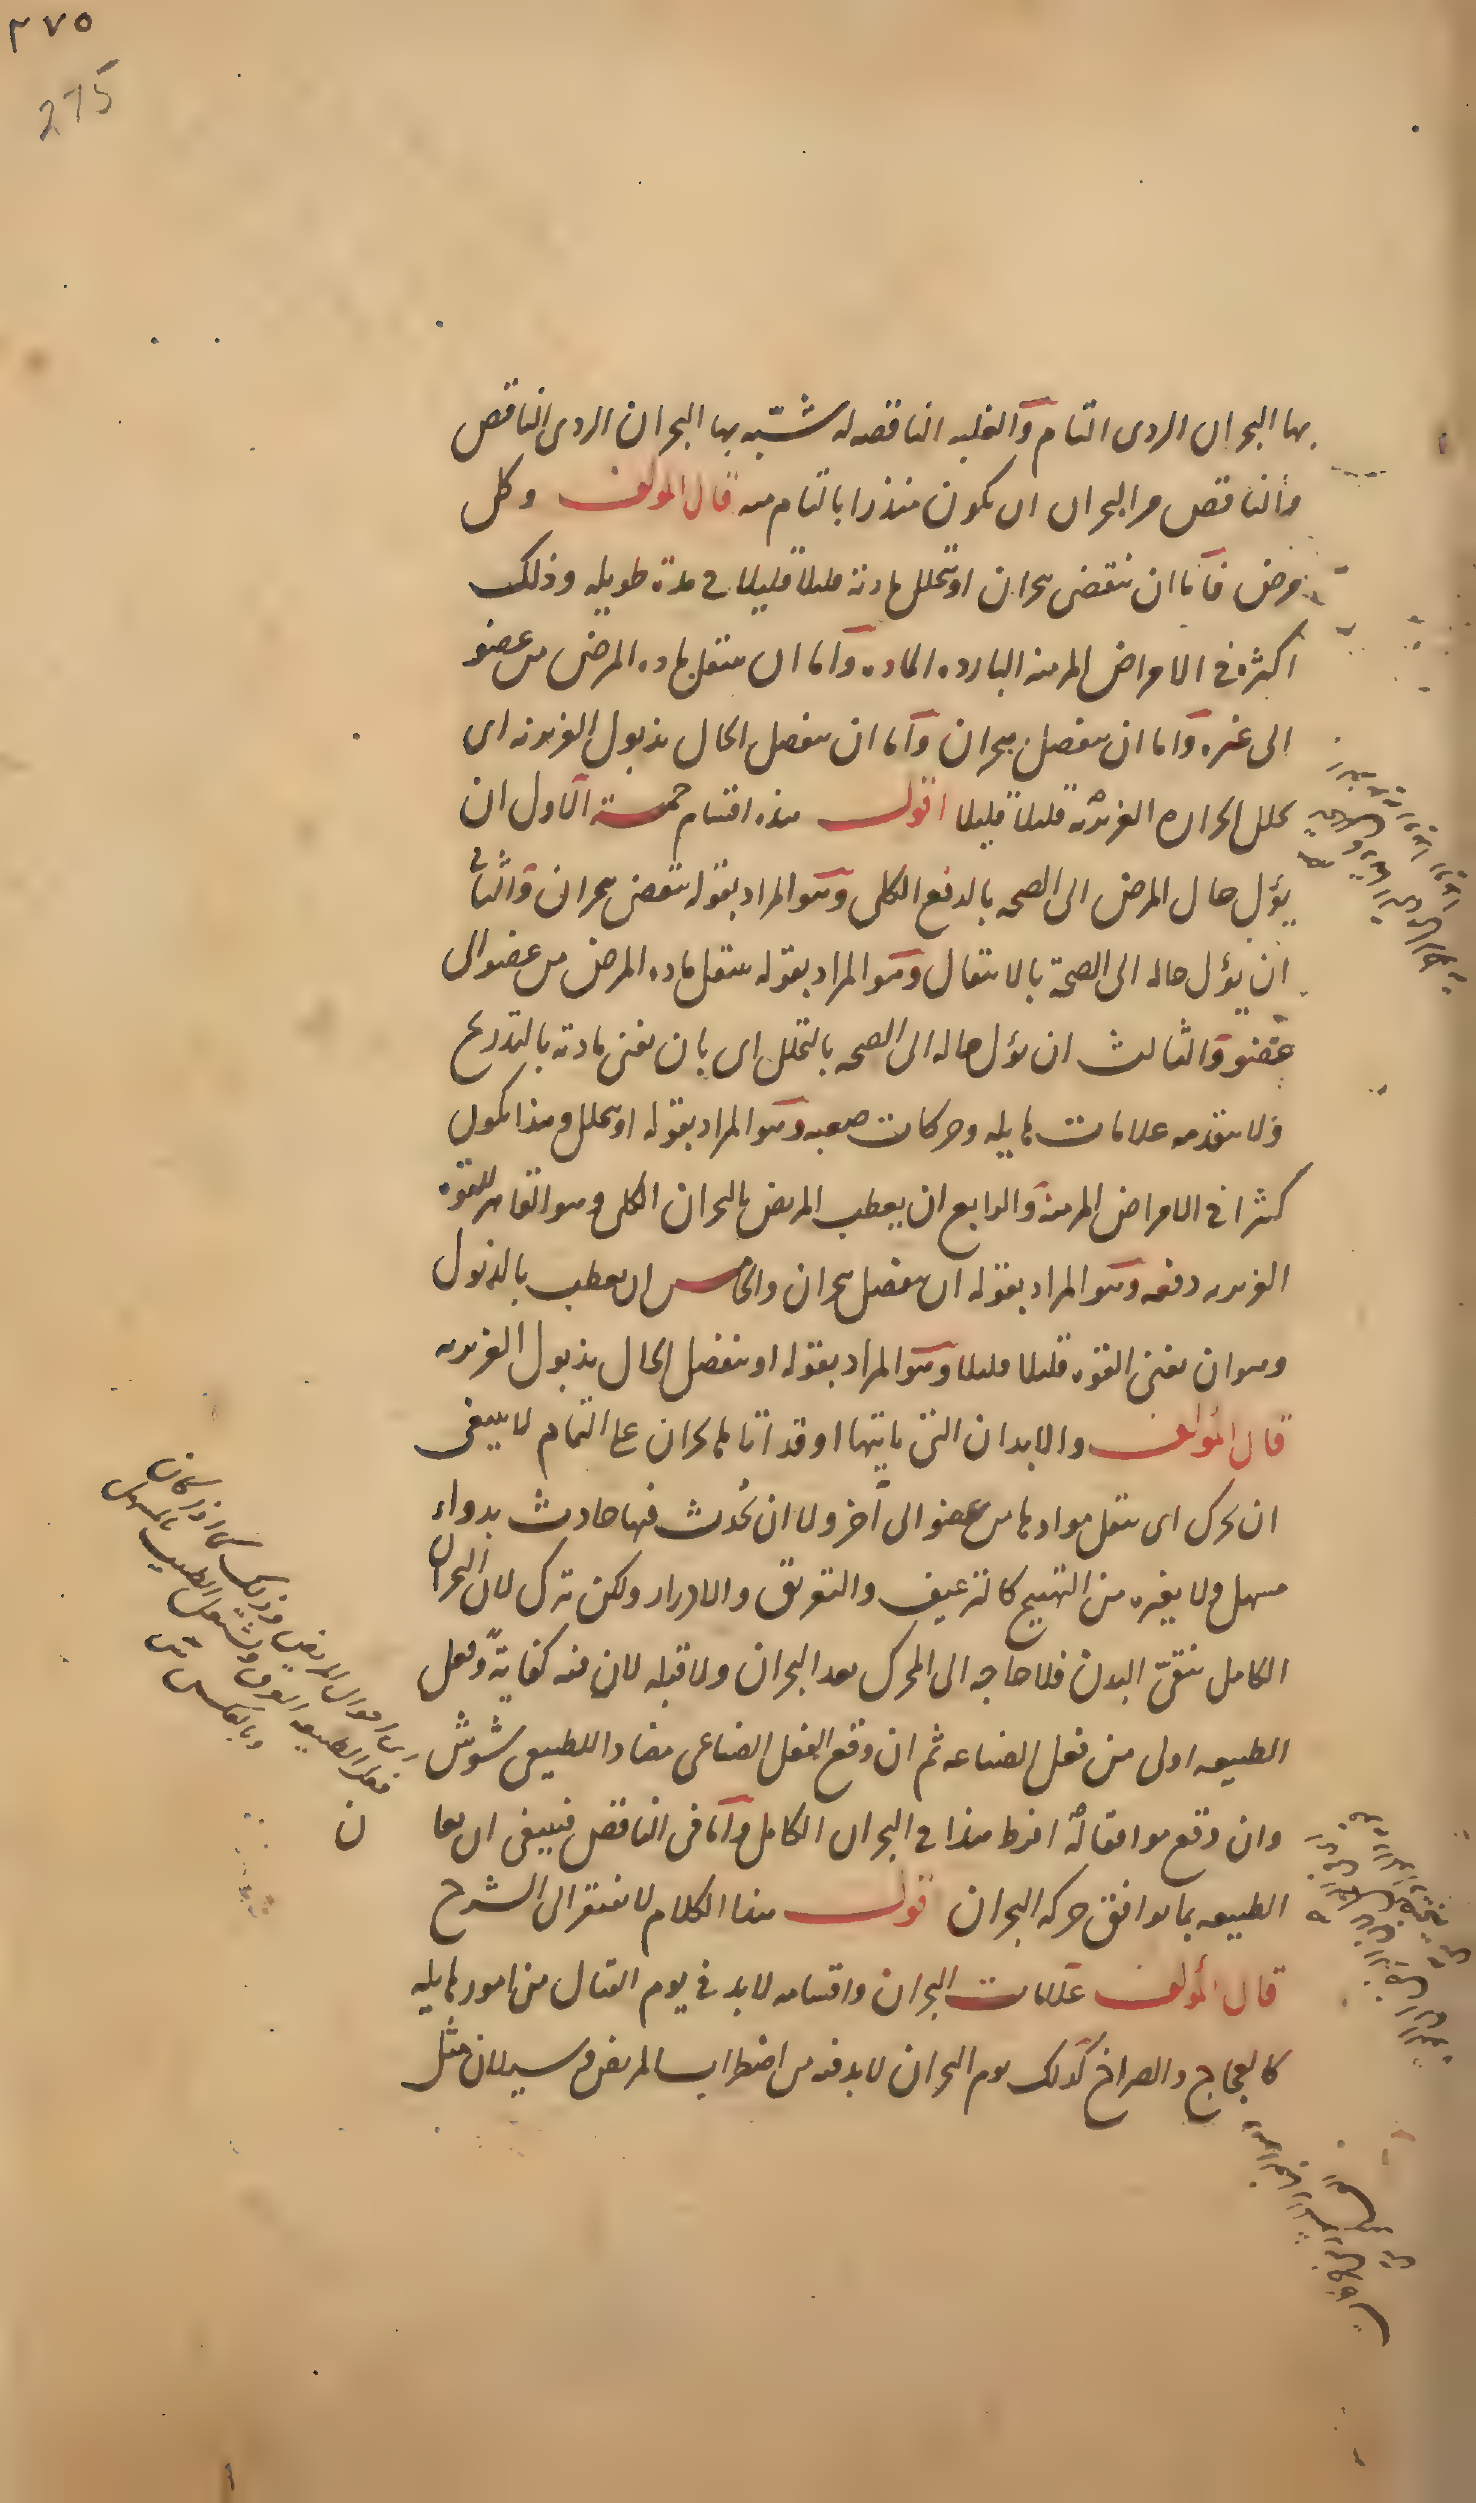 ٢٧٥
275
بها البحران الردى التام والغلبه الناقصه له شبّه بها البحران الردى الناقص
والناقص من البحران ان يكون منذرا بالتام منه قال المولف وكل
مرض فاما ان ينقضى ببحران او يتحلل مادته قليلا قليلا فى مدة طويله وذلك
اكثره فى الامراض المزمنه البارده الماده واما ان ينتقل ماده المرض من عضو
الى غيره واما ان ينفصل ببحران واما ان ينفصل الحال بذبول الغريزيه اى
تحلل الحراره الغريزيه قليلا قليلا اقول هذه اقسام خمسة الاول ان
يؤل حال المرض الى الصحه بالدفع الكلى وهو المراد بقوله ينقضى ببحران والثانى
ان يؤل حاله الى الصحة بالانتقال وهو المراد بقوله ينتقل ماده المرض من عضو الى
عضو والثالث ان يؤل حاله الى الصحه بالتحلل اى بان يفنى مادته بالتدريج
ولا يتقدمه علامات هايله وحركات صعبه وهو المراد بقوله او يتحلل وهذا يكون
كثيرا فى الامراض المزمنة والرابع ان يعطب المريض بالبحران الكلى وهو القاهر للقوه
الغريزيه دفعه وهو المراد بقوله ان ينفصل ببحران والخامس ان يعطب بالذبول
وهو ان يفنى القوه قليلا قليلا وهو المراد بقوله او ينفصل الحال بذبول الغريزيه
قال المولف والابدان التى ياتيها او قد اتاها بحران على التمام لا ينبغى
ان يحرك اى ينتقل موادها من عضو الى آخر ولا ان يحدث فيها حادث بدواء
مسهل ولا بغيره من التهييج كالترعيف والتعريق والادرار ولكن يترك لان البحران
الكامل ينقّى البدن فلا حاجه الى المحرك بعد البحران ولا قبله لان فيه كفاية وفعل
الطبيعه اولى من فعل الصناعه ثم ان وقع الفعل الصناعى مضادا للطبيعى شوش
وان وقع موافقا له افرط هذا فى البحران الكامل واما فى الناقص فينبغى ان يعا
ن
الطبيعه بما يوافق حركه البحران اقول هذا الكلام لا يفتقر الى الشرح
قال المولف علامات البحران واقسامه لا بد فى يوم القتال من امور هايله
كالعجاج والصراخ كذلك يوم البحران لا بد فيه من اضطراب المريض وسيلان مثل